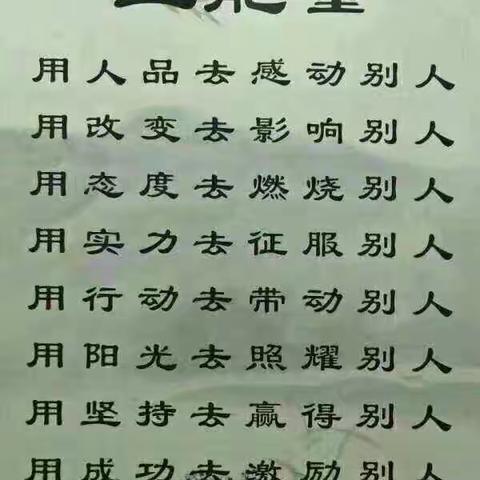 正能量
用人品去感动别人
用改变去影响别人
用态度去燃烧别人
用实力去征服别人
用行动去带动别人
用阳光去照耀别人
用坚持去赢得别人
用成功去激励别人